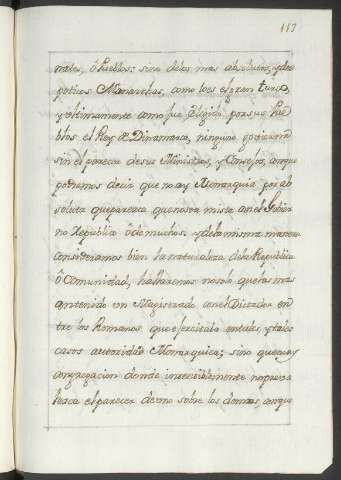 117
nales, ô Pueblos: sino delos mas absolutos, ydes
poticos Monarchas, como loes el gran turco,
y ultimamente como fue eligido por sus Pue
blos el Rey de Dinamarca, ninguno govierna
sin el parecer de sus Ministros, y Consejos, conque
podremos decir que no ay Monarquia por ab
soluta que paresca que no sea mista con el Govier
no Republica ô de muchos, y dela misma manera
consideramos bien la naturaleza dela Republica
ô Comunidad, hallaremos no solo que las mas
an tenido un Magistrado con el Dictador en
tre los Romanos que exercitaba en tales, y tales
casos autoridad Monarquica; sino que no ay
congregacion donde insensiblemente no preva
lesca el parecer de uno sobre los demas, conque